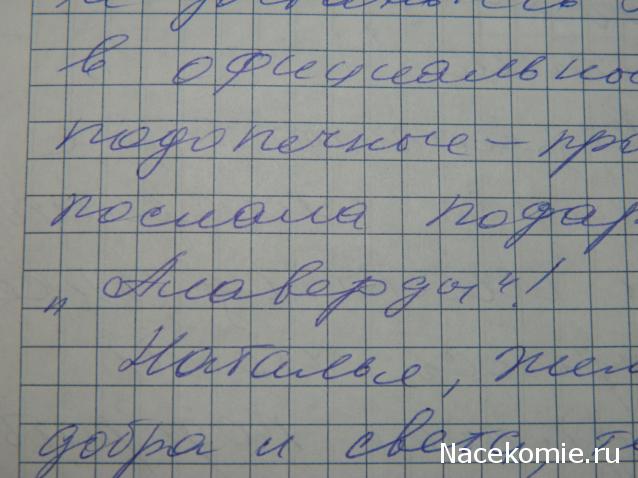 в официальны
подопечные – пр
послала подар
„Алаверды"!
Наталья, жел
добра и света, те
Nacekomie.ru